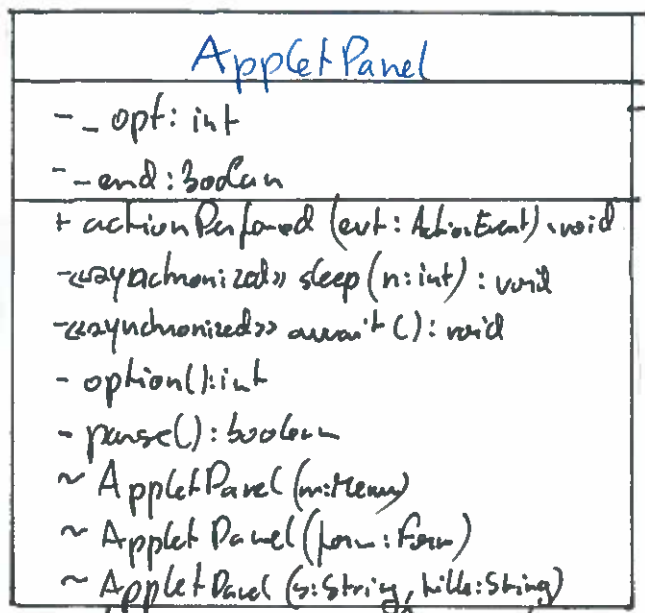 AppletPanel
- _opt: int
- _end: boolean
+ actionPerformed (evt: ActionEvent): void
- «synchronized» sleep(n: int): void
- «synchronized» await(): void
- option(): int
- parse(): boolean
~ AppletPanel (m: Menu)
~ AppletPanel (form: Form)
~ AppletPanel (s: String, title: String)